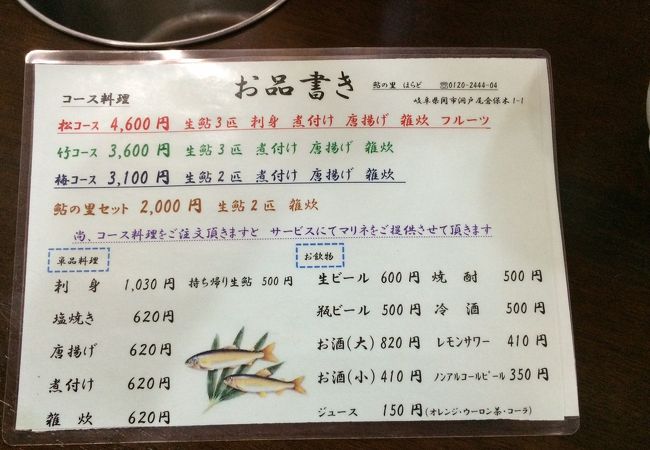 お品書き
鮎の里 ほらど ☏0120-2444-04
岐阜県関市洞戸尾倉保木 1-1
コース料理
松コース 4,600円 生鮎3匹 刺身 煮付け 唐揚げ 雑炊 フルーツ
竹コース 3,600円 生鮎3匹 煮付け 唐揚げ 雑炊
梅コース 3,100円 生鮎2匹 煮付け 唐揚げ 雑炊
鮎の里セット 2,000円 生鮎2匹 雑炊
尚、コース料理をご注文頂きますと サービスにてマリネをご提供させて頂きます
単品料理
刺身 1,030円 持ち帰り生鮎 500円
塩焼き 620円
唐揚げ 620円
煮付け 620円
雑炊 620円
お飲物
生ビール 600円 焼酎 500円
瓶ビール 500円 冷酒 500円
お酒(大) 820円 レモンサワー 410円
お酒(小) 410円 ノンアルコールビール 350円
ジュース 150円(オレンジ・ウーロン茶・コーラ)